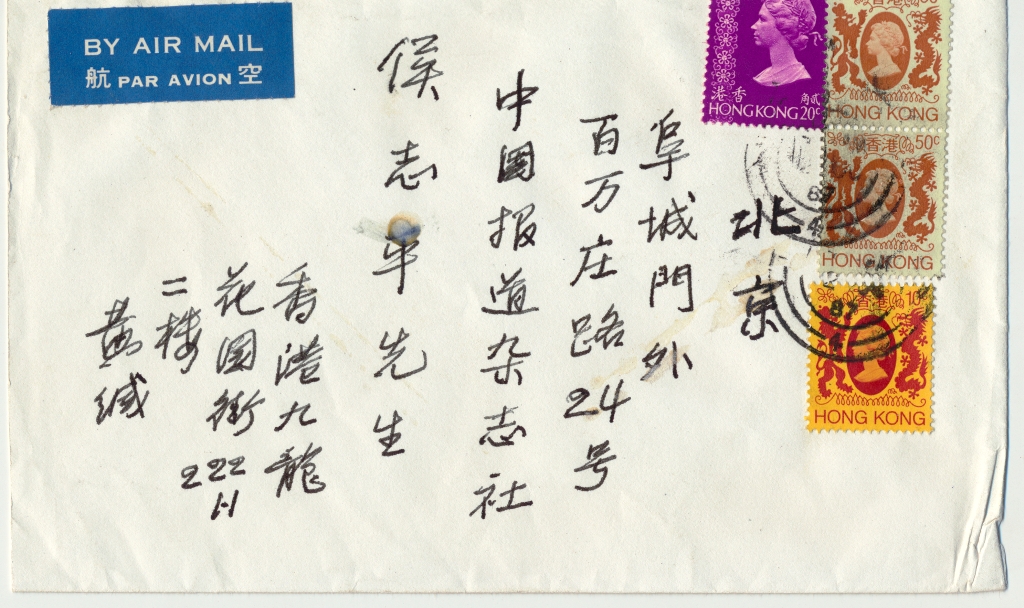 BY AIR MAIL
航 PAR AVION 空
香港
貳角
HONG KONG 20c
HONG KONG
香港 50c
HONG KONG
香港 10c
HONG KONG
87
北京
阜城門外
百万庄路24号
中國报道杂志社
侯志平先生
香港九龍
花園街222
二樓
黄